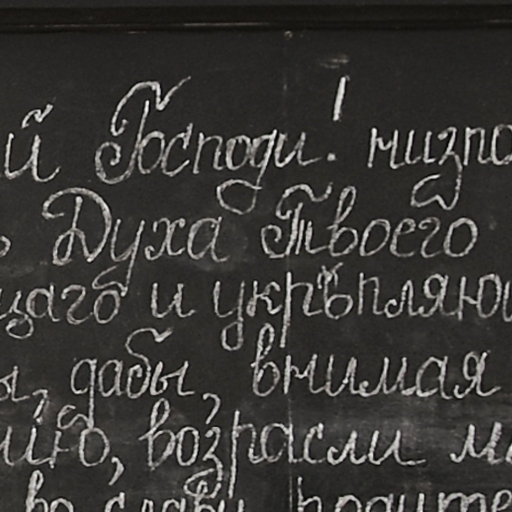 ий Господи! низпо
ь Духа Твоего
щаго и укрѣпляющ
ы, дабы, внимая
нію, возрасли м
во славу, родите